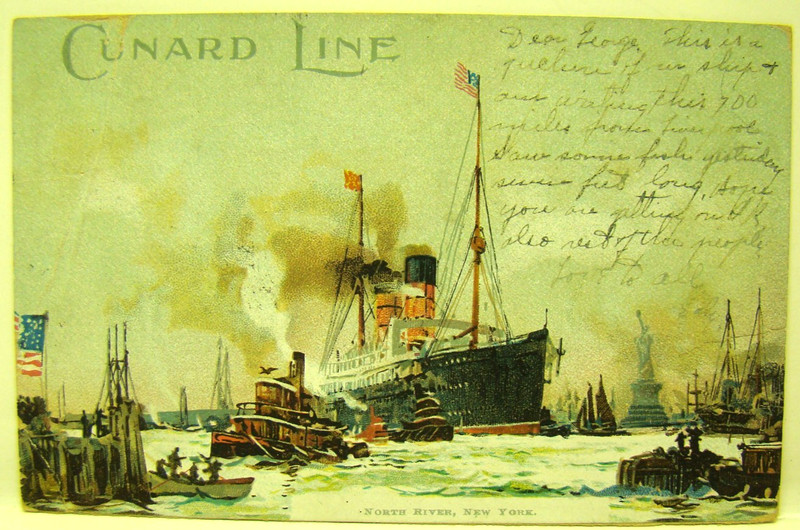 CUNARD LINE
Dear George, This is a
picture of our ship &
am writing this 700
miles from Liverpool
Saw some fish yesterday
seven feet long, hope
you are getting on O.K.
also rest of the people
love to all
NORTH RIVER, NEW YORK.